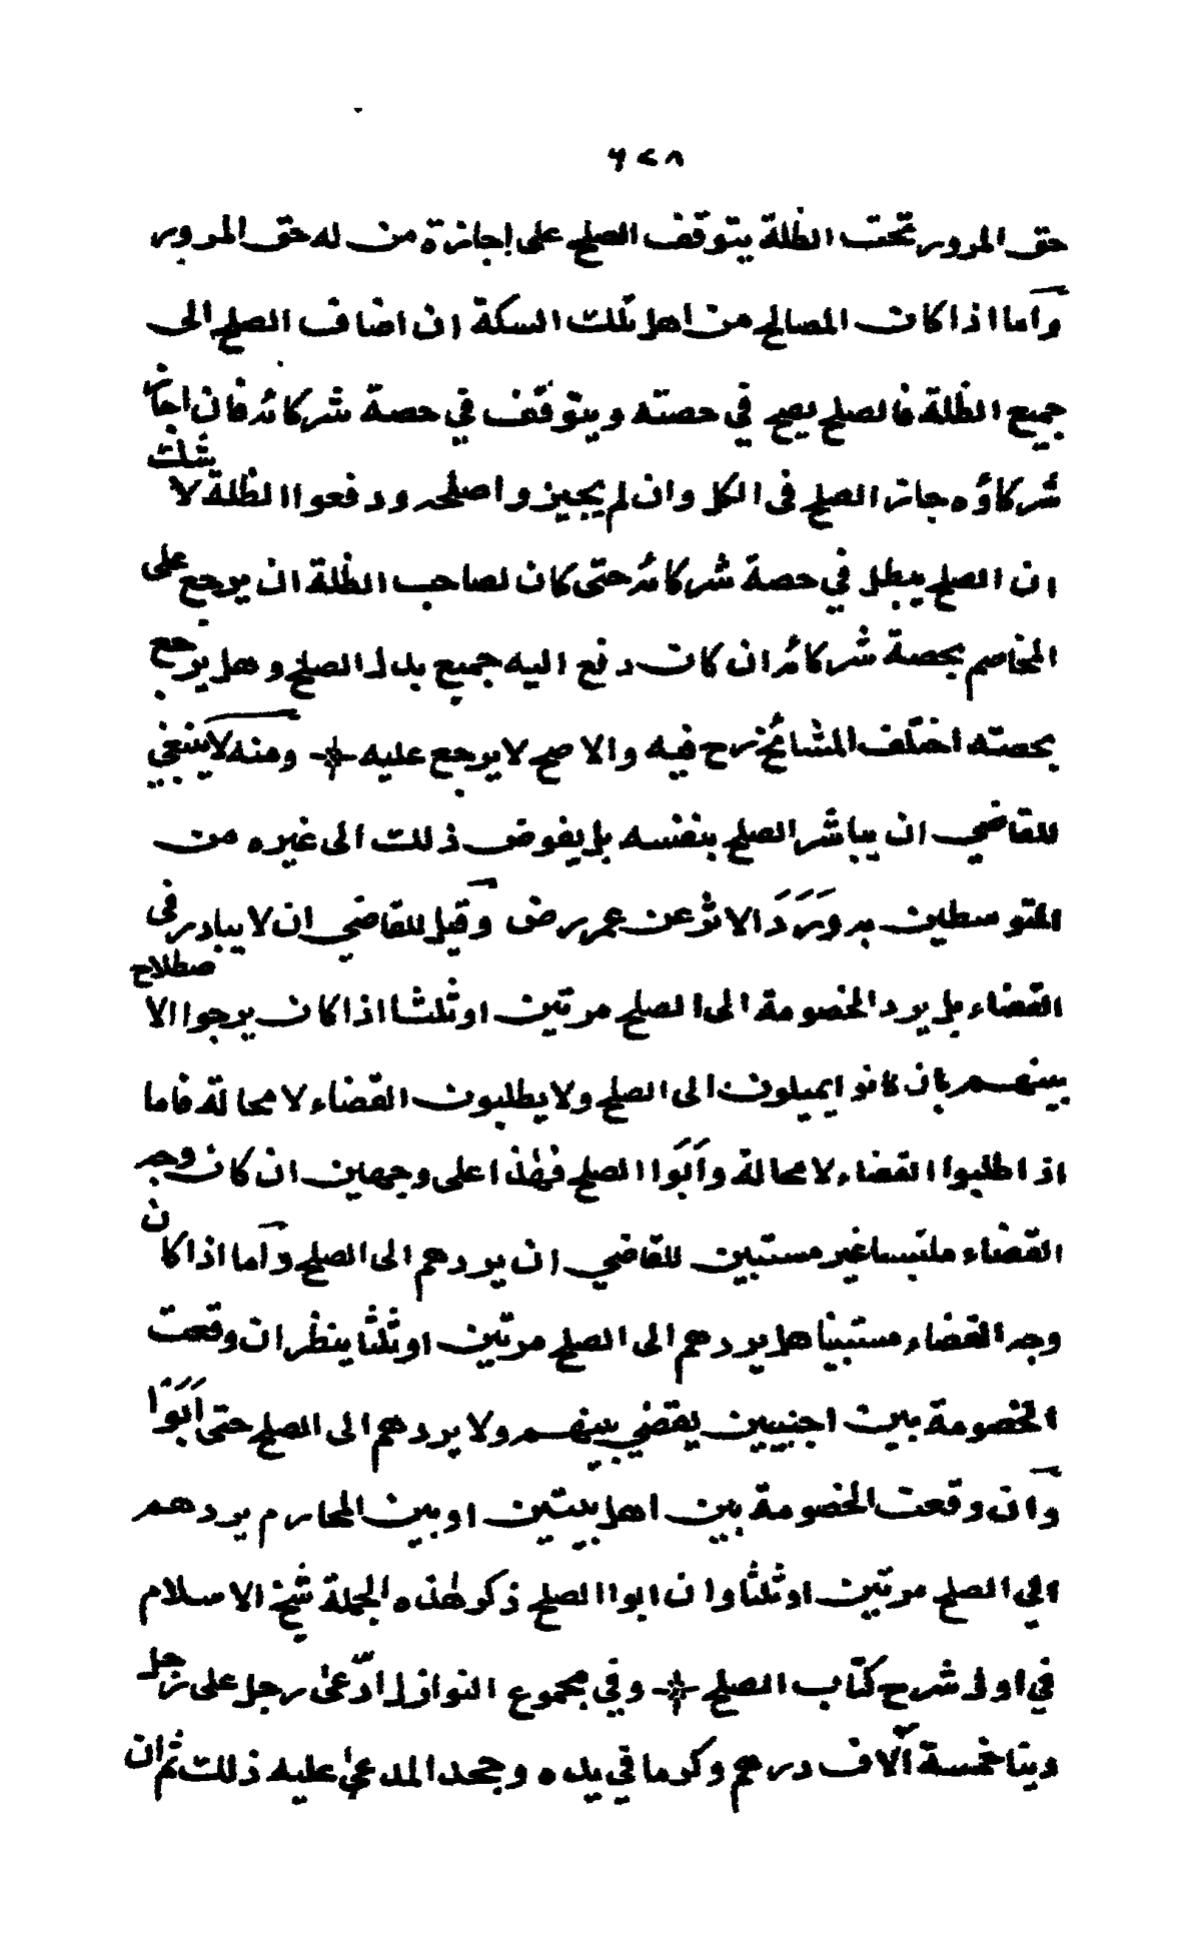 ٦٢٨
حق المرور تحت الظلة يتوقف الصلح على إجازة من له حق المرور
وأما اذا كان المصالح من اهل تلك السكة ان اضاف الصلح الى
جميع الظلة فالصلح يصح في حصته ويتوقف في حصة شركائه فان اجاز
شركاؤه جاز الصلح فى الكل وان لم يجيزوا صلحه ودفعوا الظلة لا شك
ان الصلح يبطل في حصة شركائه حتى كان لصاحب الظلة ان يرجع على
المخاصم بحصة شركائه ان كان دفع اليه جميع بدل الصلح وهل يرجع
بحصته اختلف المشائخ رح فيه والاصح لا يرجع عليه * ومنه لا ينبغي
للقاضي ان يباشر الصلح بنفسه بل يفوض ذلك الى غيره من
المتوسطين به وَرَدَ الاثر عن عمر رض وقيل للقاضي ان لا يبادر فى
القضاء بل يرد الخصومة الى الصلح مرتين او ثلثا اذا كان يرجوا الاصطلاح
بينهم بان كانوا يميلون الى الصلح ولا يطلبون القضاء لا محالة فاما
اذا طلبوا القضاء لا محالة وأَبَوا الصلح فهٰذا على وجهين ان كان وجه
القضاء ملتبسا غير مستبين للقاضي ان يردهم الى الصلح وأما اذا كان
وجه القضاء مستبينا هل يردهم الى الصلح مرتين او ثلثا ينظر ان وقعت
الخصومة بين اجنبيين يقضي بينهم ولا يردهم الى الصلح حتى أَبَوْا
وان وقعت الخصومة بين اهل بيتين او بين المحارم يردهم
الى الصلح مرتين او ثلثا وان ابوا الصلح ذكر هٰذه الجملة شيخ الاسلام
في اول شرح كتاب الصلح * وفي مجموع النوازل ادّعىٰ رجل على رجل
دينا خمسة آلاف درهم وكرما في يده وجحد المدعىٰ عليه ذلك ثم ان